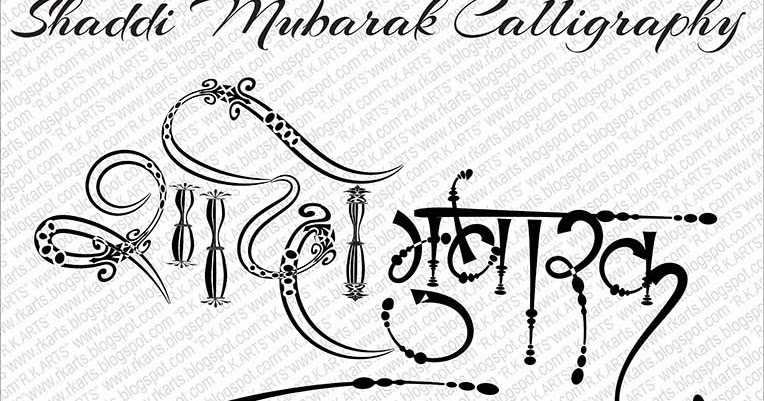 Shaddi Mubarak Calligraphy
शादी मुबारक
"R.K.ARTS" www.rkarts.blogspot.com